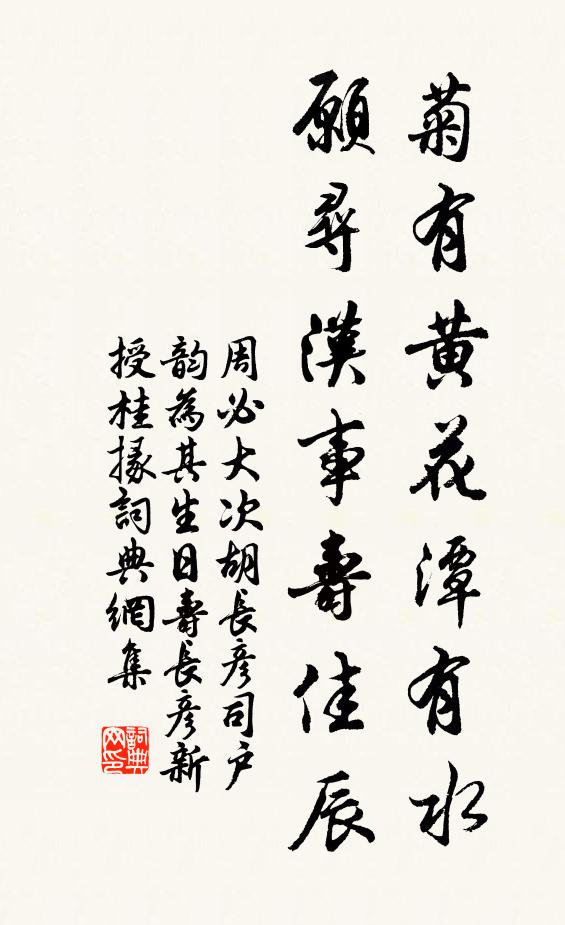 菊有黄花潭有水
願尋漢事壽佳辰
周必大次胡長彦司户
韵為其生日壽長彦新
授桂掾詞典網集
詞典网印